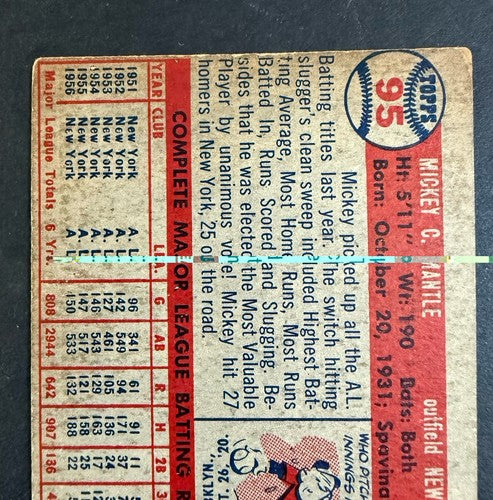 TOPPS
95
MICKEY C. MANTLE outfield NEW
Ht: 5'11" Wt: 190 Bats: Both
Born: October 20, 1931; Spavina
Mickey picked up all the A.L.
Batting titles last year. The switch hitting
slugger's clean sweep included Highest Bat-
ting Average, Most Home Runs, Most Runs
Batted In, Runs Scored and Slugging. Be-
sides that he was elected the Most Valuable
Player by unanimous vote! Mickey hit 27
homers in New York, 25 on the road.
WHO PITCH
INNINGS
COMPLETE MAJOR LEAGUE BATTING R
YEAR CLUB LEA. G AB R H 2B 3
1951 New York A. L. 96 341 61 91 11
1952 New York A. L. 142 549 94 171 37
1953 New York A. L. 127 461 105 136 24
1954 New York A. L. 146 543 129 163 17
1955 New York A. L. 147 517 121 158 25
1956 New York A. L. 150 533 132 188 22
Major League Totals 6 Yrs. 808 2944 642 907 136 4